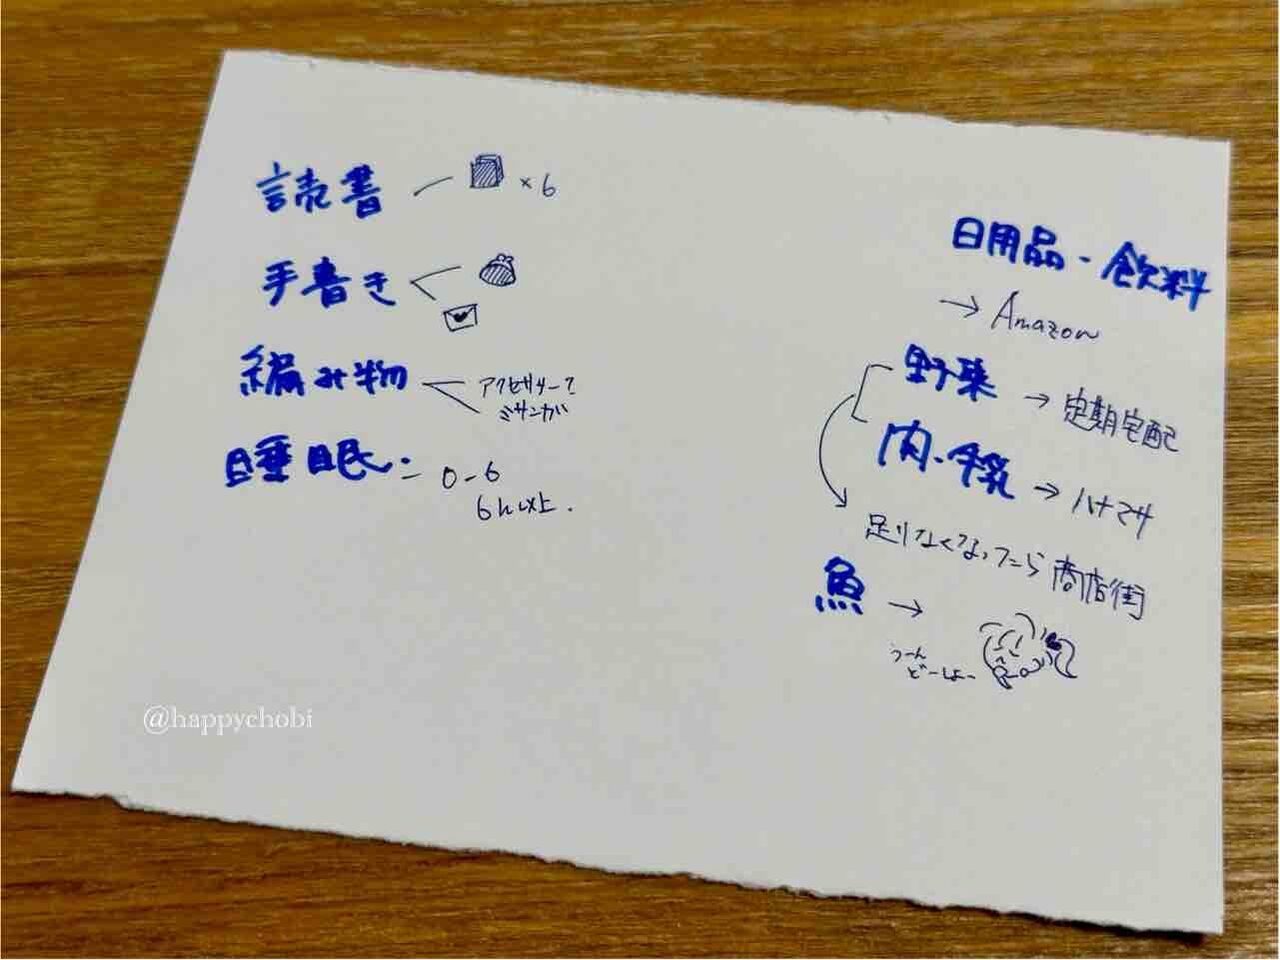 読書 — ×6
手書き
編み物 アクセサリーて
ミサンガ
睡眠. – 0-6
6h以上.
日用品・飲料
→ Amazon
野菜 → 定期宅配
肉・牛乳 → ハナマサ
足りなくなったら 商店街
魚 →
うーん
どーしよー
@happychobi